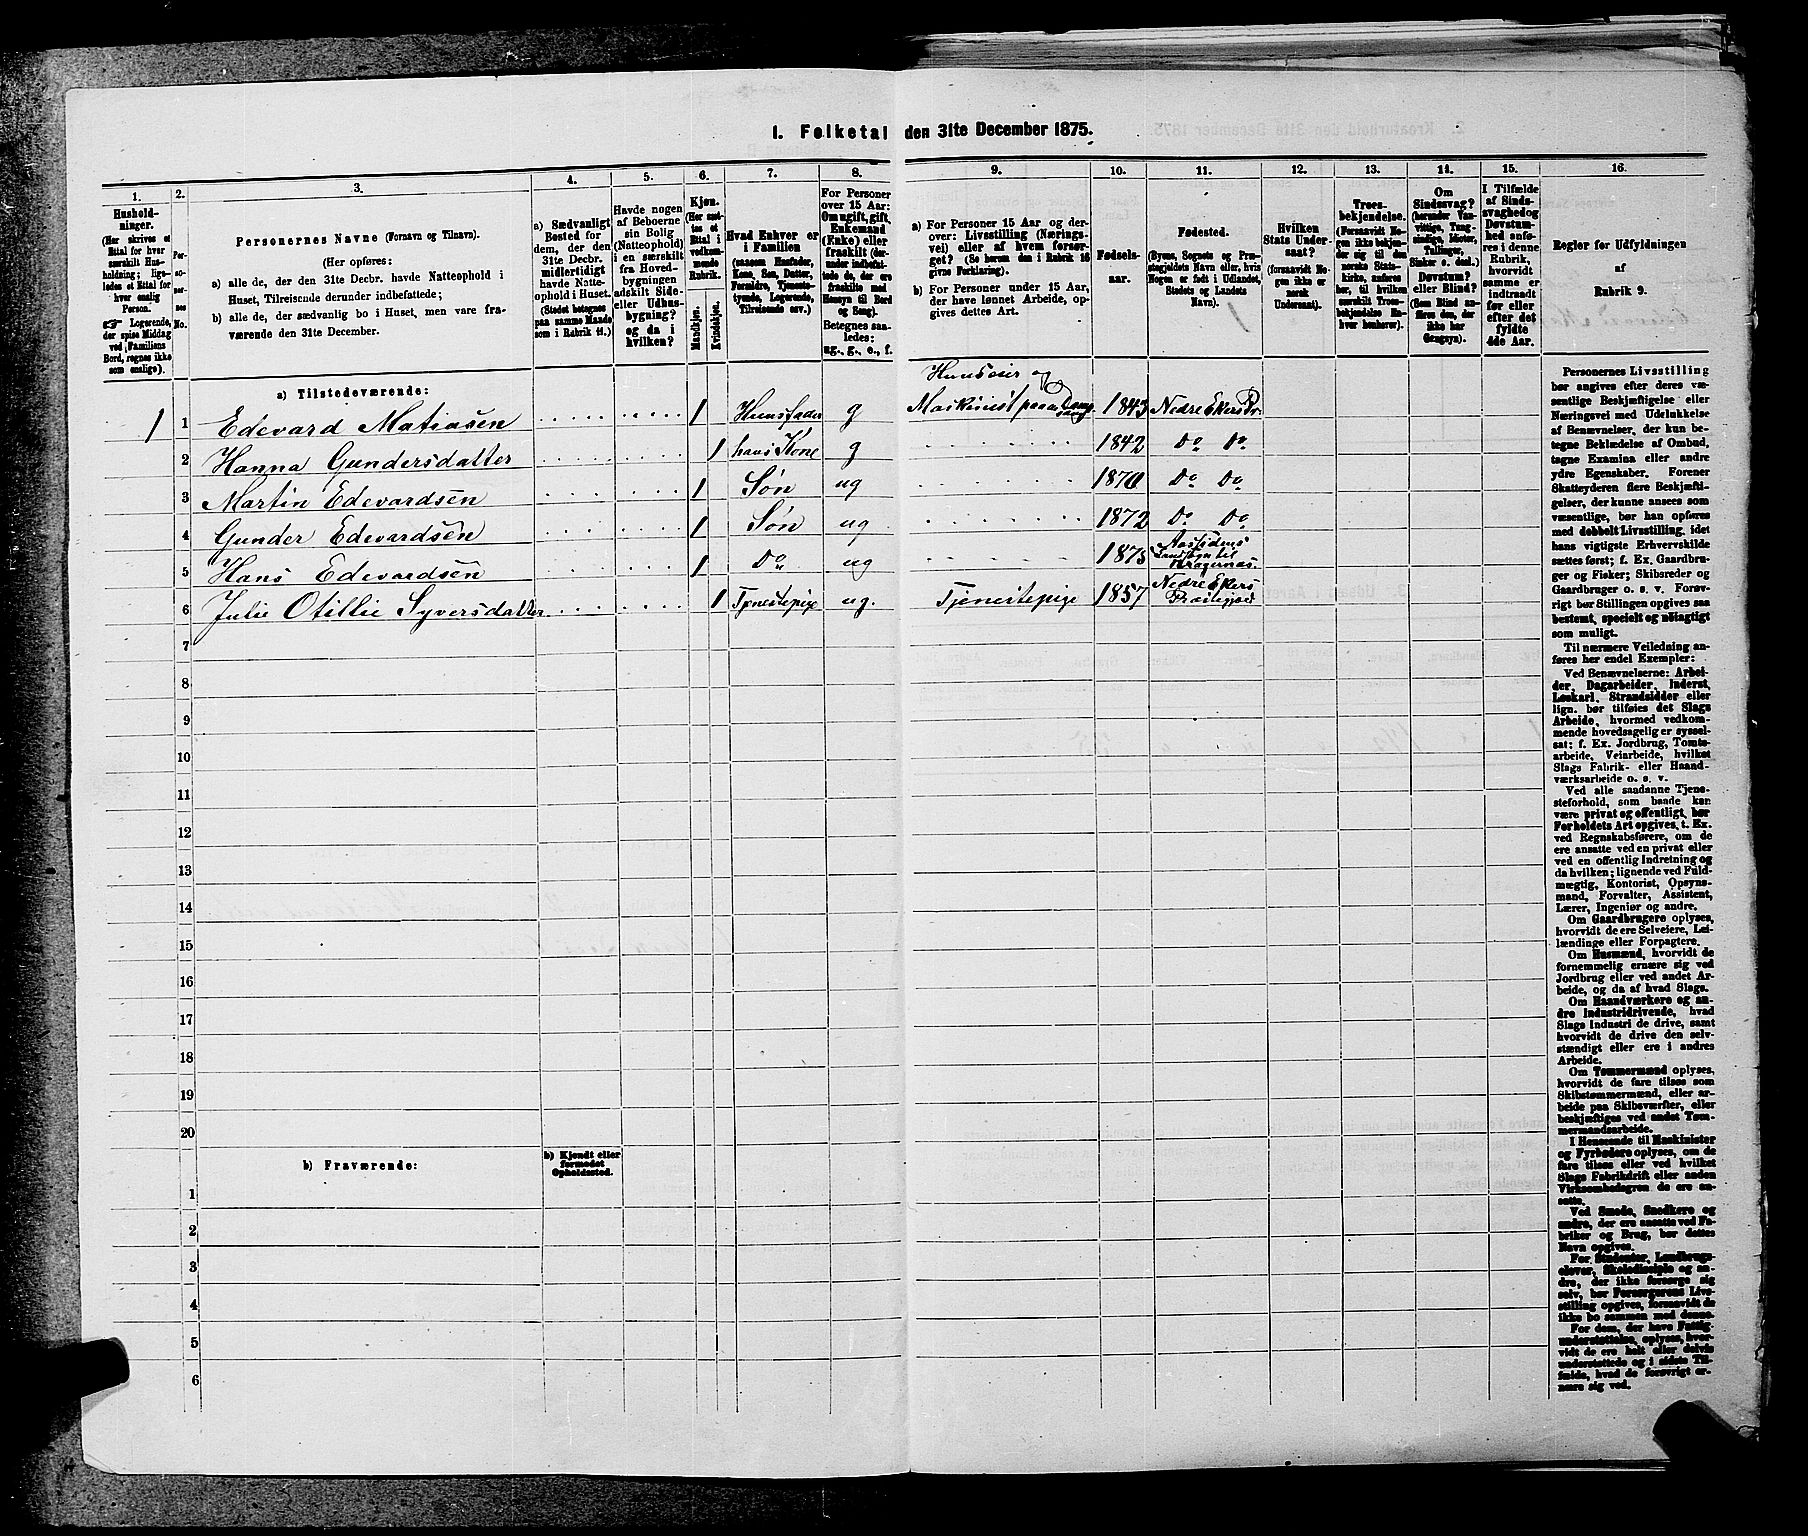 1. Folketal den 31te December 1875.
1.
Hushold-
ninger.
(Her skrives et
Ettal for hver
særskilt Hus-
holdning; lige-
ledes et Ettal for
hver enslig
Person.
☞ Logerende,
der spise Middag
ved Familiens
Bord, regnes ikke
som enslige).
2.
Per-
so-
ner-
nes
No.
3.
Personernes Navne (Fornavn og Tilnavn).
(Her opføres:
a) alle de, der den 31te Decbr. havde Natteophold i
Huset, Tilreisende derunder indbefattede;
b) alle de, der sædvanlig bo i Huset, men vare fra-
værende den 31te December.
4.
a) Sædvanligt
Bosted for
dem, der den
31te Decbr.
midlertidigt
havde Natte-
ophold i Huset.
(Stedet betegnes
paa samme Maade
som i Rubrik 11.)
5.
Havde nogen
af Beboerne
sin Bolig
(Natteophold)
i en særskilt
fra Hoved-
bygningen
adskilt Side-
eller Udhus-
bygning?
og da i
hvilken?
6.
Kjøn.
(Her sæt-
tes et
Ettal i
vedkom-
mende
Rubrik.
Mandkjøn.
Kvindekjøn.
7.
Hvad Enhver er
i Familien
(saasom Husfader,
Kone, Søn, Datter,
Forældre, Tjeneste-
tyende, Logerende,
Tilreisende osv.)
8.
For Personer
over 15 Aar:
Om ugift, gift,
Enkemand
(Enke) eller
fraskilt (der-
under indbefat-
tede de, der ere
fraskilte med
Hensyn til Bord
og Seng).
Betegnes saa-
ledes:
ug., g., e., f.
9.
a) For Personer 15 Aar og der-
over: Livsstilling (Nærings-
vei) eller af hvem forsør-
get? (Se herom den i Rubrik 16
givne Forklaring).
b) For Personer under 15 Aar,
der have lønnet Arbeide, op-
gives dettes Art.
10.
Fødsels-
aar.
11.
Fødested.
(Byens, Sognets og Præ-
stegjeldets Navn eller, hvis
Nogen er født i Udlandet,
Stedets og Landets
Navn).
12.
Hvilken
Stats Under-
saat?
(forsaavidt No-
gen ikke er
norsk
Undersaat).
13.
Troes-
bekjendelse.
(Forsaavidt No-
gen ikke bekjen-
der sig til den
norske Stats-
kirke, anføres
her, til hvilken
særskilt Troes-
bekjendelse En-
hver henhører).
14.
Om
Sindssvag?
(herunder Van-
vittige, Tung-
sindige, Idioter,
Tullinger,
Sinker o. desl.)
Døvstum?
eller Blind?
(Som Blind an-
føres den, der
ikke har
Gangsyn).
15.
I Tilfælde
af Sinds-
svaghed og
Døvstum-
hed anfø-
res i denne
Rubrik,
hvorvidt
samme er
indtraadt
før eller
efter det
fyldte
4de Aar.
16.
Regler for Udfyldningen
af
Rubrik 9.
a) Tilstedeværende:
Huuseier og
1 1 Edevard Matiasen 1 Huusfader g Maskinist paa en 1843 Nedre Ekers Pr.
2 Hanna Gundersdatter 1 hans Kone g 1842 Do Do
3 Martin Edevardsen 1 Søn ug 1870 Do Do
4 Gunder Edevardsen 1 Søn ug 1872 Do Do
5 Hans Edevardsen 1 Do ug 1875 Aassidens Landsogn til Bragernæs.
6 Julie Otillie Syversdatter 1 Tjenestepige ug. Tjenestepige 1857 Nedre Ekers Præstegjæld
7
8
9
10
11
12
13
14
15
16
17
18
19
20
b) Fraværende:
b) Kjendt eller
formodet
Opholdssted.
1
2
3
4
5
6
Personernes Livsstilling
bør angives efter deres væ-
sentlige Beskjæftigelse eller
Næringsvei med Udelukkelse
af Benævnelser, der kun be-
tegne Beklædelse af Ombud,
tagne Examina eller andre
ydre Egenskaber. Forener
Skatteyderen flere Beskjæfti-
gelser, der kunne ansees som
væsentlige, bør han opføres
med dobbelt Livsstilling, idet
hans vigtigste Erhvervskilde
sættes først; f. Ex. Gaardbru-
ger og Fisker; Skibsreder og
Gaardbruger o. s. v. Forøv-
rigt bør Stillingen opgives saa
bestemt, specielt og nøiagtigt
som muligt.
Til nærmere Veiledning an-
føres her endel Exempler:
Ved Benævnelserne: Arbei-
der, Dagarbeider, Inderst,
Løskarl, Strandsidder eller
lign. bør tilføies det Slags
Arbeide, hvormed vedkom-
mende hovedsagelig er syssel-
sat; f. Ex. Jordbrug, Tomte-
arbeide, Veiarbeide, hvilket
Slags Fabrik- eller Haand-
værksarbeide o. s. v.
Ved alle saadanne Tjene-
steforhold, som baade kan
være privat og offentligt, bør
Forholdets Art opgives, t. Ex.
ved Regnskabsførere, om de
ere ansatte ved en privat eller
ved en offentlig Indretning og
da hvilken; lignende ved Fuld-
mægtig, Kontorist, Opsyns-
mand, Forvalter, Assistent,
Lærer, Ingeniør og andre.
Om Gaardbrugere oplyses,
hvorvidt de ere Selveiere, Lei-
lændinge eller Forpagtere.
Om Husmænd, hvorvidt de
fornemmelig ernære sig ved
Jordbrug eller ved andet Ar-
beide, og da af hvad Slags.
Om Haandværkere og an-
dre Industridrivende, hvad
Slags Industri de drive, samt
hvorvidt de drive den selv-
stændigt eller ere i andres
Arbeide.
Om Tømmermænd oplyses,
hvorvidt de fare tilsøs som
Skibstømmermænd, eller ar-
beide paa Skibsværfter, eller
beskjæftiges ved andet Tøm-
mermandsarbeide.
I Henseende til Maskinister
og Fyrbødere oplyses, om de
fare tilsøs eller ved hvilket
Slags Fabrikdrift eller anden
Virksomhedsgren de ere an-
satte.
Ved Smede, Snedkere og
andre, der ere ansatte ved Fa-
briker og Brug, bør dettes
Navn opgives.
For Studenter, Landbrugs-
elever, Skoledisciple og an-
dre, der ikke forsørge sig
selv, bør Forsørgerens Livs-
stilling opgives, forsaavidt de
ikke bo sammen med denne.
For dem, der have Fattig-
understøttelse, oplyses, hvor-
vidt de ere helt eller delvis
understøttede og i sidste Til-
fælde, hvad de forøvrigt er-
nære sig ved.